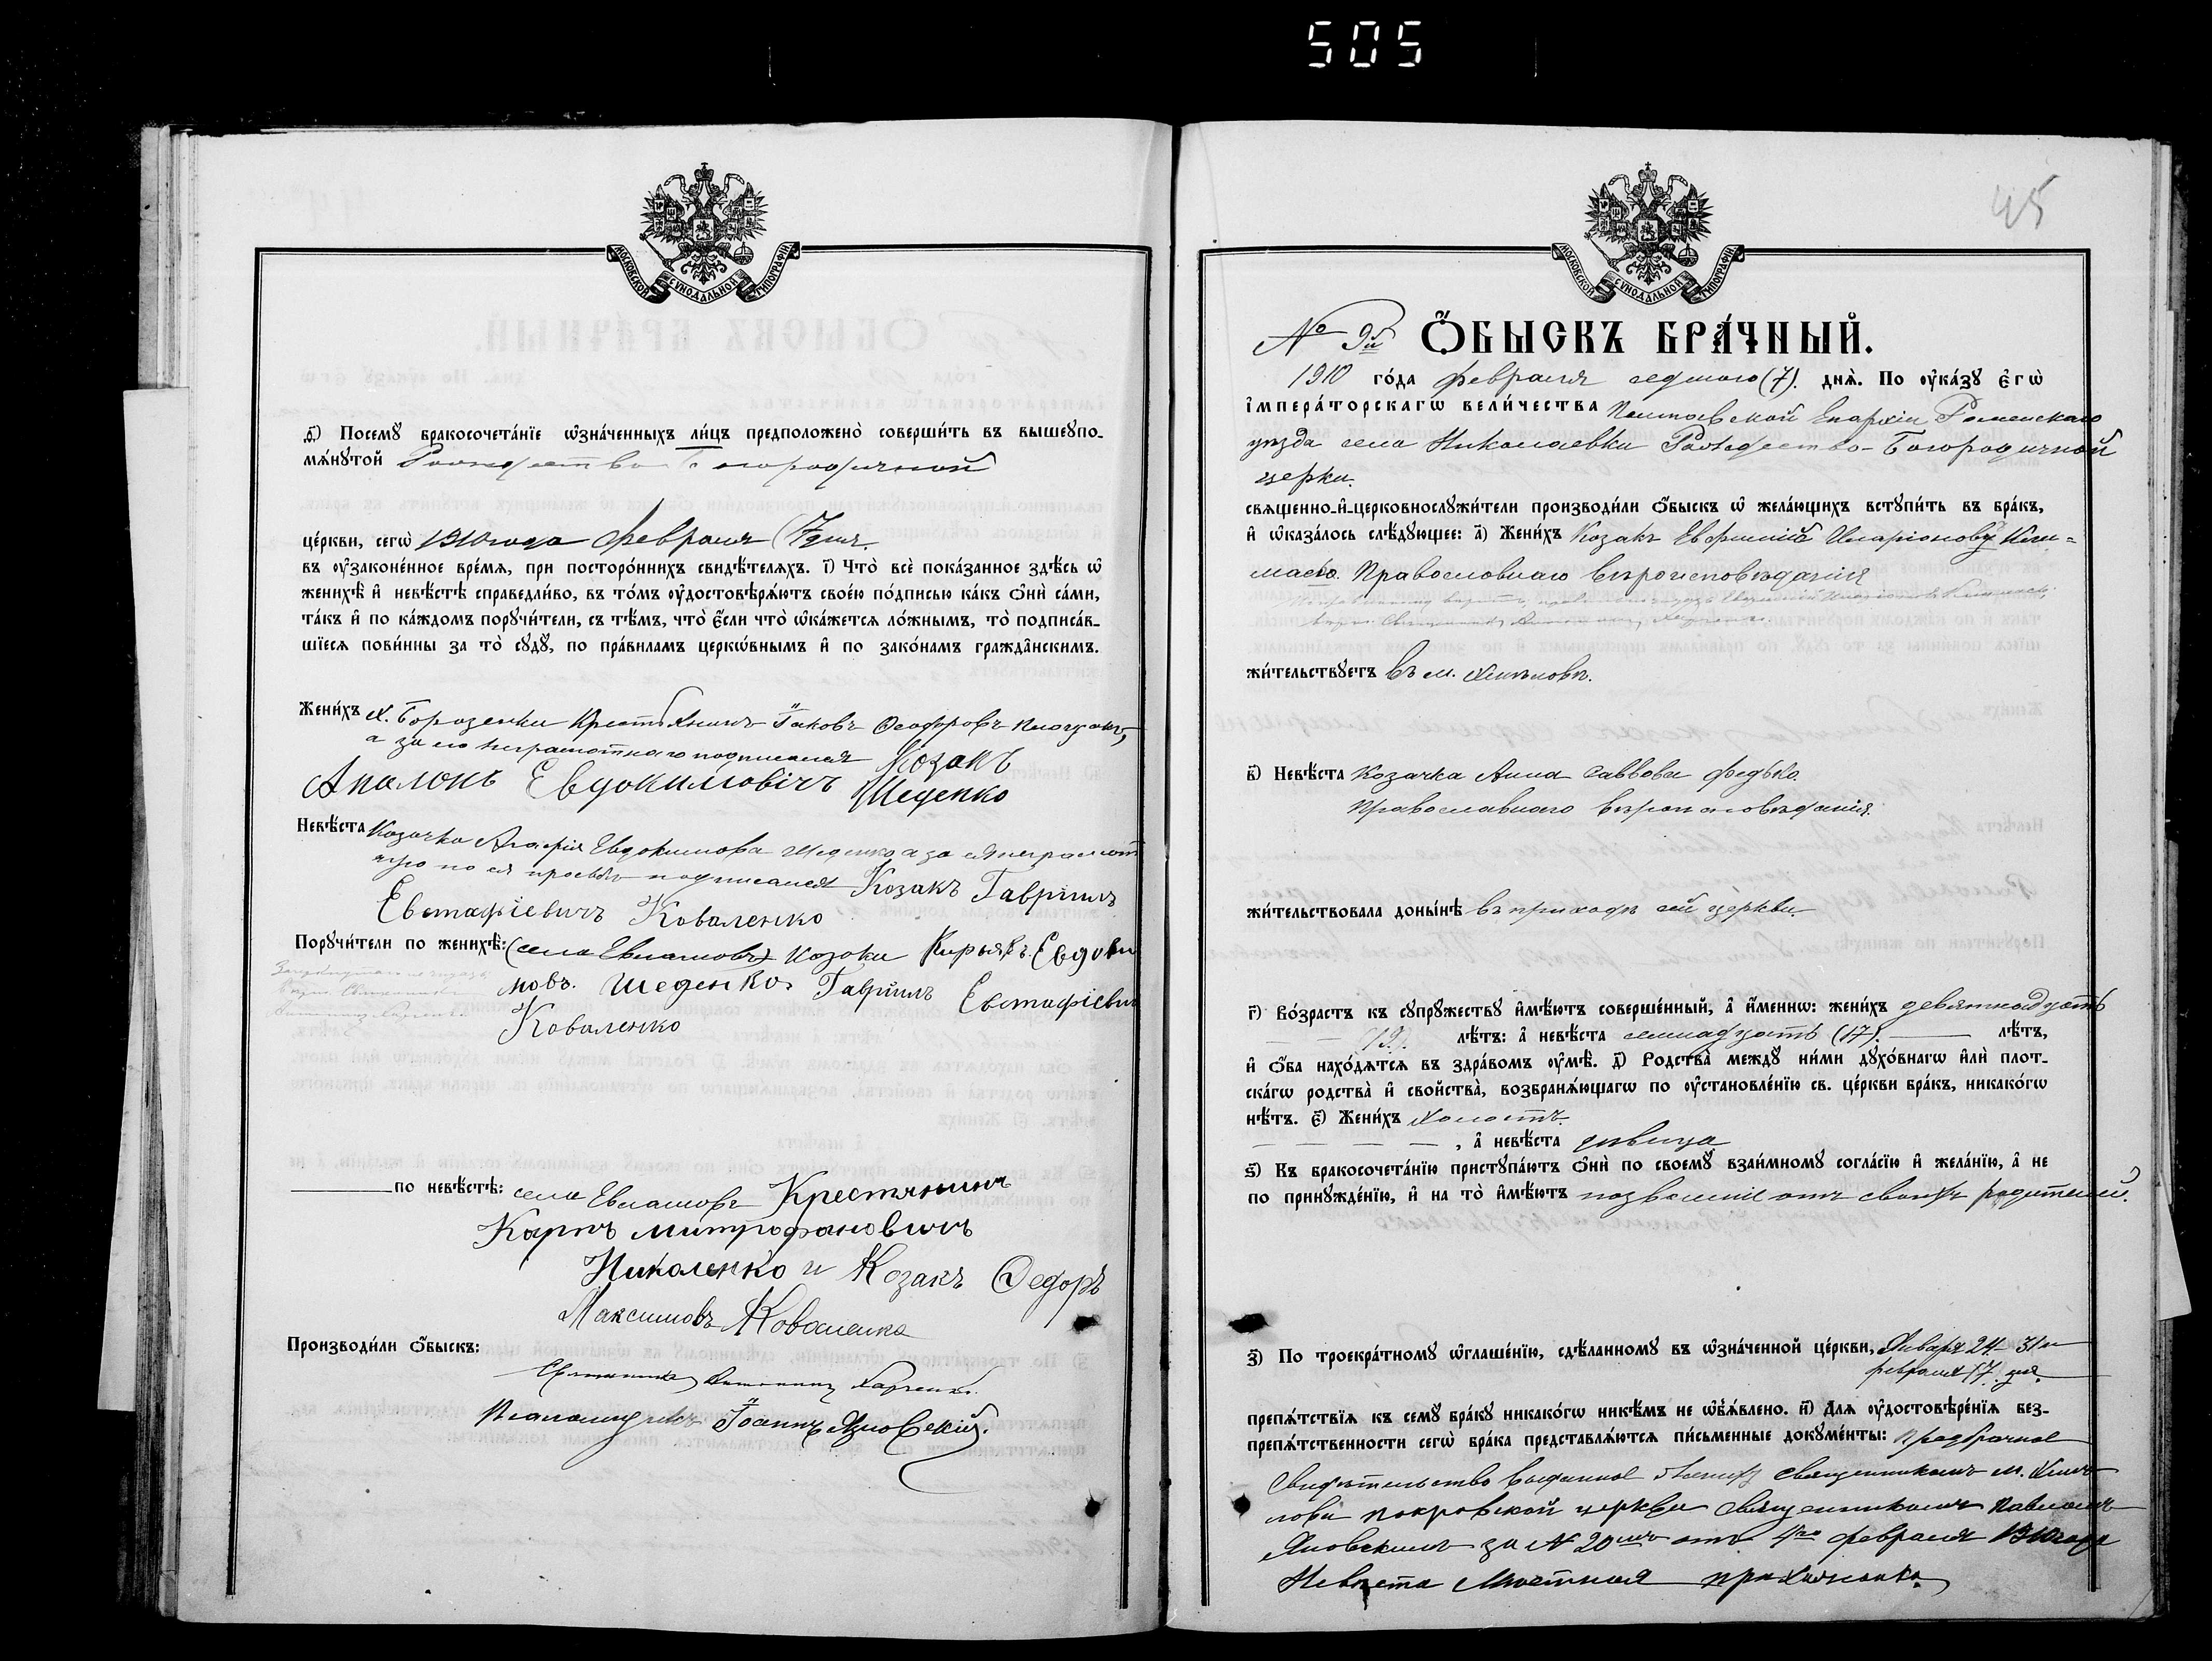 505
МОСКОВСКОЙ СѴНОДАЛЬНОЙ ТИПОГРАФІИ
ѳ҃) Посемꙋ̀ бракосочета́нїе ѡ҆зна́ченныхъ ли́цъ предположено̀ соверши́ть въ вышеꙋпо-
мѧ́нꙋтой Рождество Богородичной
це́ркви, сегѡ̀ 1910 года февраля (7 дня.
въ ᲂу҆зако́ненное вре́мѧ, при посторо́ннихъ свидѣ́телѧхъ. і҃) Что̀ всѐ пока́занное здѣ́сь ѡ҆
женихѣ̀ и҆ невѣ́стѣ справедли́во, въ то́мъ ᲂу҆достовѣрѧ́ютъ свое́ю по́дписью ка́къ ѻ҆нѝ са́ми,
та́къ и҆ по ка́ждомъ порꙋчи́тели, съ тѣ́мъ, что̀ є҆́сли что̀ ѡ҆ка́жетсѧ ло́жнымъ, то̀ подписа́в-
шїесѧ пови́нны за то̀ сꙋдꙋ̀, по пра́виламъ церкѡ́внымъ и҆ по зако́намъ гражда̑нскимъ.
Жени́хъ х. Борозенки Крестьянинъ Іаковъ Ѳеодоровъ
а за его неграмотнаго подписался Козакъ
Аполонъ Евдокимовічъ Шеденко
Невѣ́ста Козачка Агафія Евдокимова Шеденко а за ея неграмот
ную по ея просьбѣ подписался Козакъ Гавріилъ
Евстафіевичъ Коваленко
Порꙋчи́тели по женихѣ̀: (села Евлашовъ) Козаки Кирьякъ Евдоки
мовъ Шеденко Гавріилъ Евстафіевич
Коваленко
по невѣ́стѣ: села Евлашовъ Крестянинъ
Карпъ Митрофановичъ
Николенко и Козакъ Ѳедоръ
Максимовъ Коваленко
Производи́ли ѻ҆́быскъ:
Священникъ Антонинъ
Псаломщикъ Іоаннъ Яновскій.
45
МОСКОВСКОЙ СѴНОДАЛЬНОЙ ТИПОГРАФІИ
№ 9й Ѻ҆́БЫСКЪ БРА́ЧНЫЙ.
1910 го́да февраля седмого (7). днѧ̀. По ᲂу҆ка́зꙋ є҆гѡ̀
і҆мпера́торскагѡ вели́чества Полтавской Епархіи Роменскаго
уѣзда села Николаевки Рождество-Богородичной
церкви.
свѧщенно-и҆-церковнослꙋжи́тели производи́ли ѻ҆́быскъ ѡ҆ жела́ющихъ встꙋпи́ть въ бра́къ,
и҆ ѡ҆каза́лось слѣ́дꙋющее: а҃) Жени́хъ Козакъ Евфимій Иларіоновъ Кли=
Православнаго вѣроисповѣданія
жи́тельствꙋетъ въ м. Хмѣловѣ.
в҃) Невѣ́ста Козачка Анна Саввова Федько.
Православнаго вѣроисповѣданія.
жи́тельствовала доны́нѣ въ приходѣ сей церкви.
г҃) Во́зрастъ къ сꙋпрꙋ́жествꙋ и҆мѣ́ютъ соверше́нный, а҆ и҆́меннѡ: жени́хъ девятнадцать
(19) лѣ́тъ: а҆ невѣ́ста семнадцать (17). лѣ́тъ,
и҆ ѻ҆́ба нахо́дѧтсѧ въ здра́вомъ ᲂу҆мѣ̀. д҃) Родства̀ междꙋ̀ ни́ми дꙋхо́внагѡ и҆лѝ плот-
ска́гѡ родства̀ и҆ свойства̀, возбранѧ́ющагѡ по ᲂу҆становле́нїю св. це́ркви бра́къ, никако́гѡ
нѣ́тъ. є҃) Жени́хъ Холостъ.
, а҆ невѣ́ста дѣвица
ѕ҃) Къ бракосочета́нїю пристꙋпа́ютъ ѻ҆нѝ по своемꙋ̀ взаи́мномꙋ согла́сїю и҆ жела́нїю, а҆ не
по принꙋжде́нїю, и҆ на то̀ и҆мѣ́ютъ позволеніе отъ своихъ родителей.
з҃) По троекра́тномꙋ ѡ҆глаше́нїю, сдѣ́ланномꙋ въ ѡ҆зна́ченной це́ркви, Января 24 31 и
февраля (7. дня.
препѧ́тствїѧ къ семꙋ̀ бра́кꙋ никако́гѡ никѣ́мъ не ѡ҆б̾ѧ́влено. и҃) Длѧ ᲂу҆достовѣре́нїѧ без-
препѧ́тственности сегѡ̀ бра́ка представлѧ́ютсѧ пи́сьменные докꙋме́нты: предбрачное
свидѣтельство выданное жениху священникомъ м. Хмѣ
лова Покровской церкви священникомъ Павломъ
Яновскимъ за № 20мъ отъ 4го февраля 1910 года
Невѣста мѣстная прихожанка